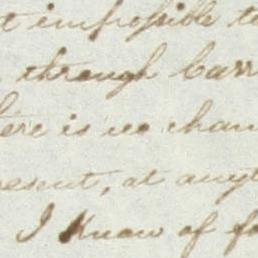 t impossible to
through barr
here is no chan
resent, at anyt
I Know of fo